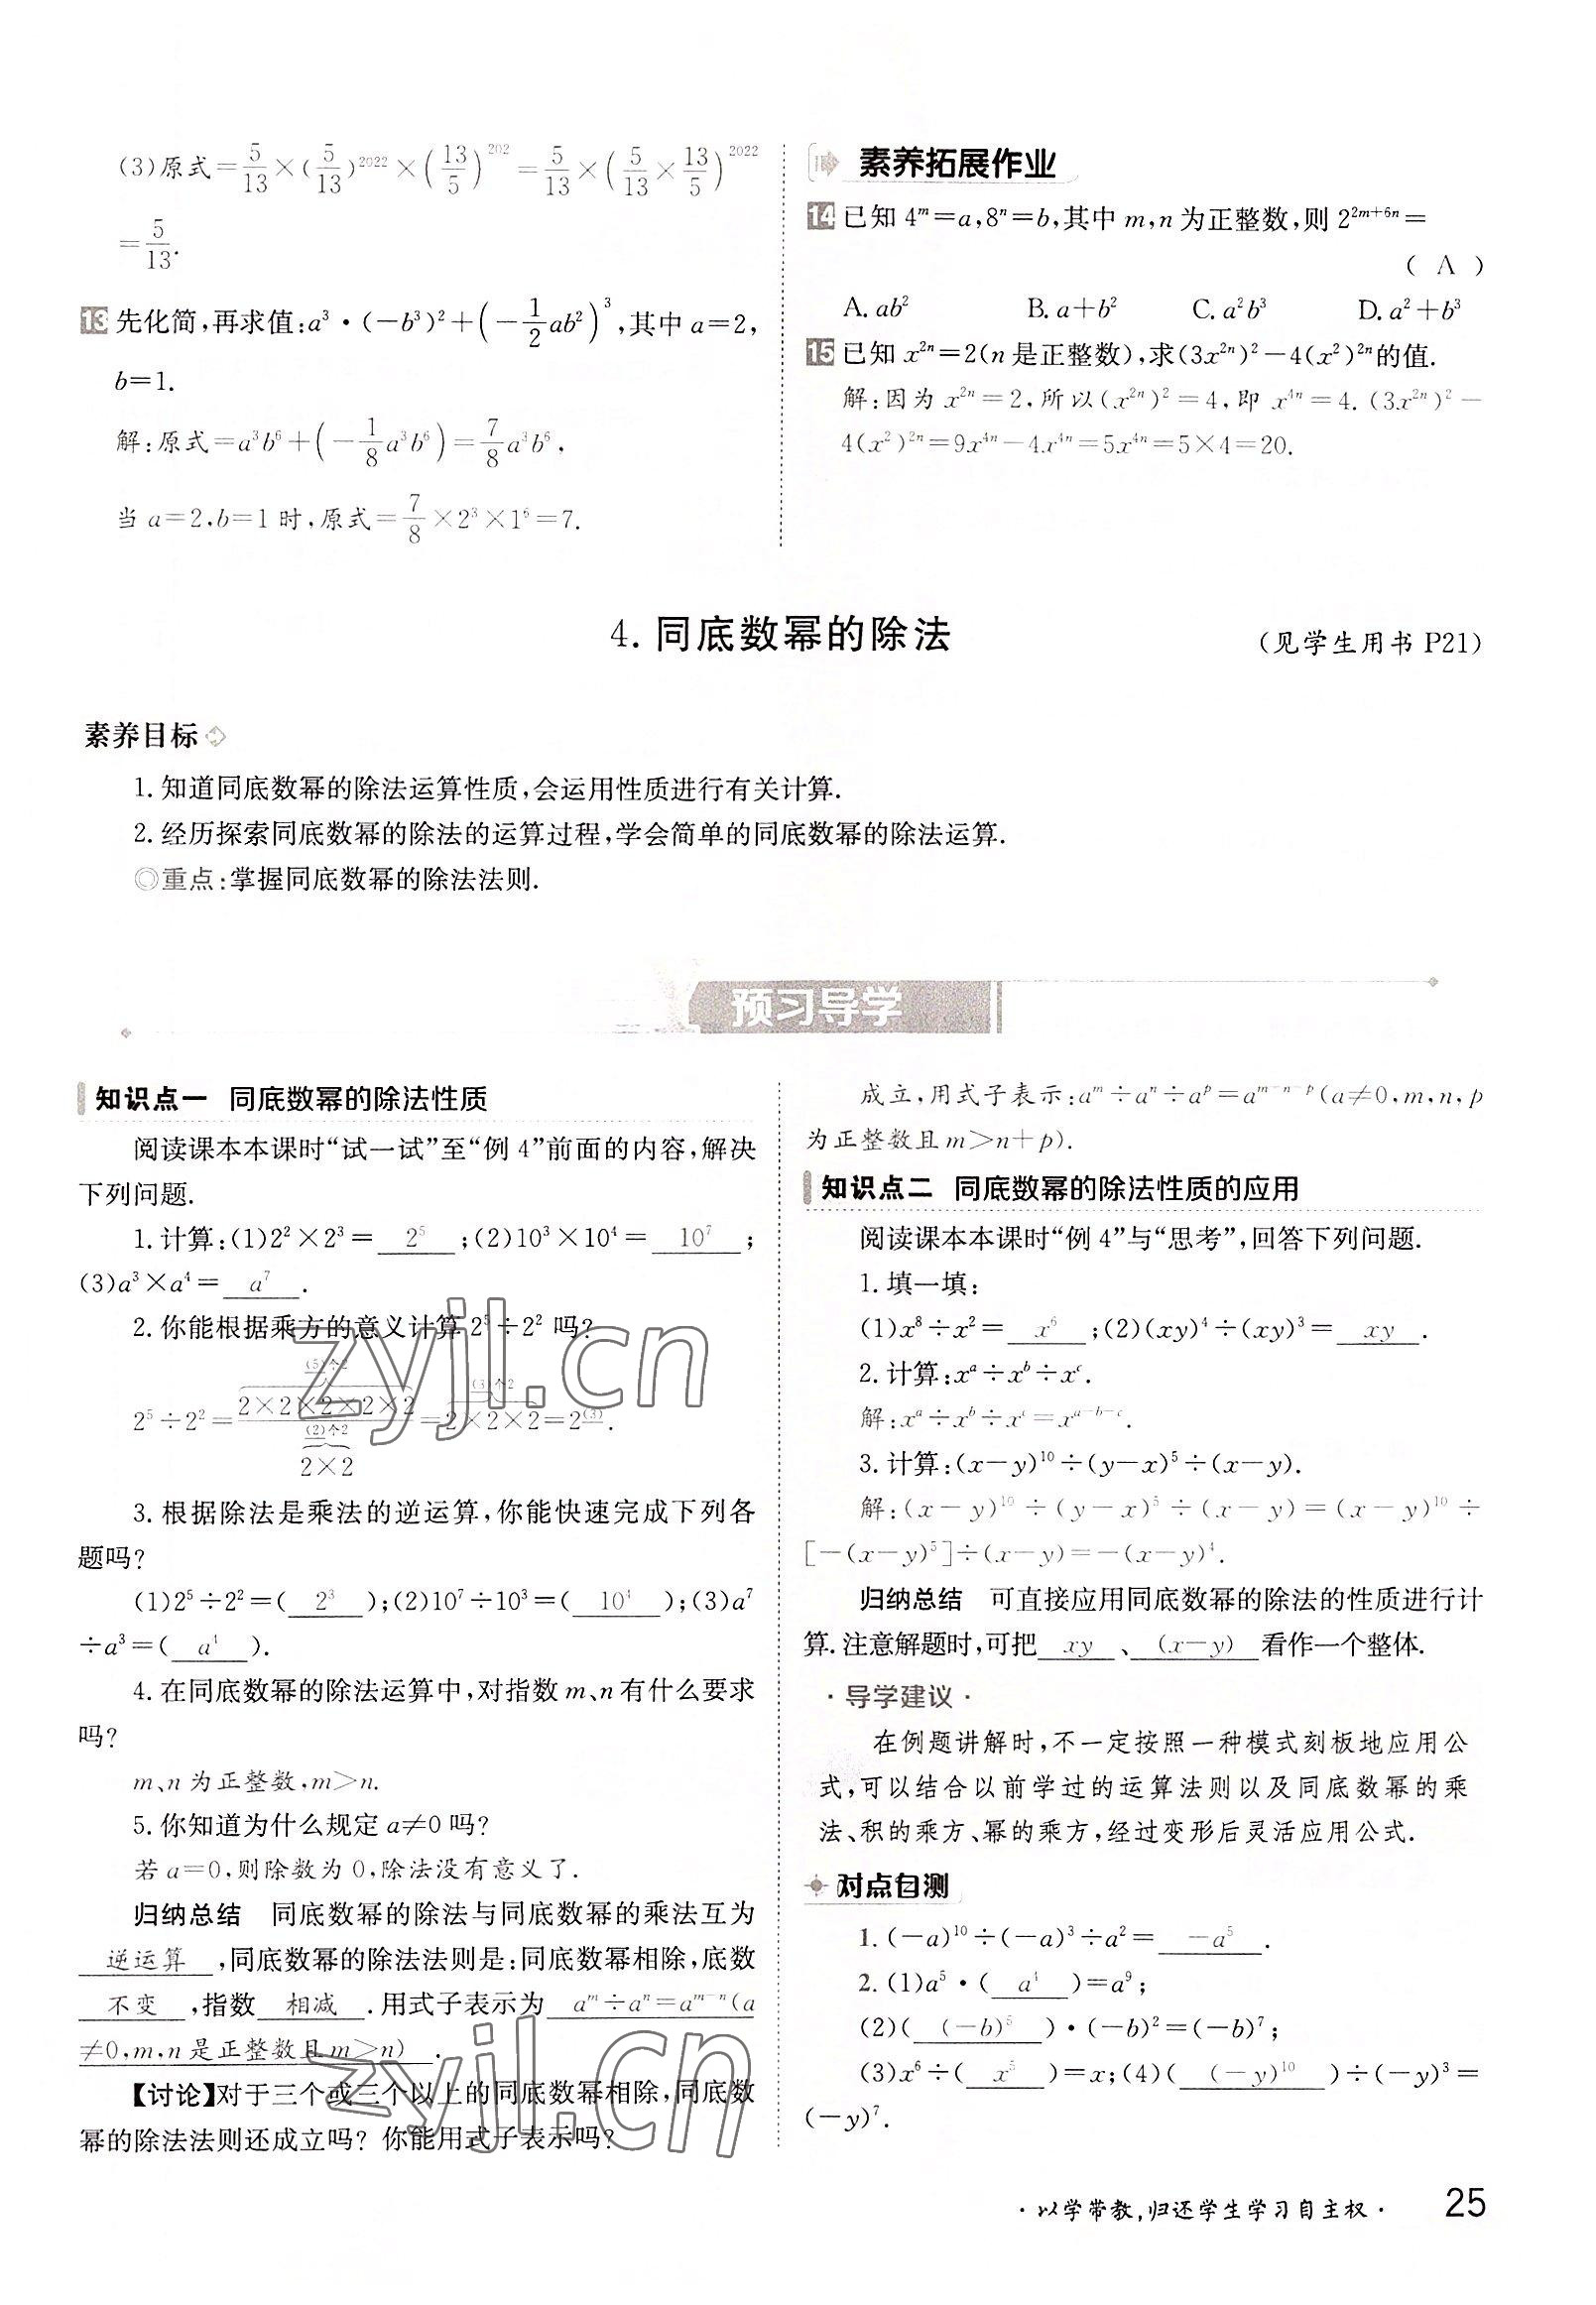 (3)原式=5/13×(5/13)²⁰²²×(13/5)²⁰²=5/13×(5/13×13/5)²⁰²²
=5/13.
13 先化简,再求值:a³·(-b³)²+(-1/2ab²)³,其中a=2,
b=1.
解:原式=a³b⁶+(-1/8a³b⁶)=7/8a³b⁶,
当a=2,b=1时,原式=7/8×2³×1⁶=7.
素养拓展作业
14 已知4ᵐ=a,8ⁿ=b,其中m,n为正整数,则2²ᵐ⁺⁶ⁿ=
( A )
A.ab² B.a+b² C.a²b³ D.a²+b³
15 已知x²ⁿ=2(n是正整数),求(3x²ⁿ)²-4(x²)²ⁿ的值.
解:因为x²ⁿ=2,所以(x²ⁿ)²=4,即x⁴ⁿ=4.(3x²ⁿ)²-
4(x²)²ⁿ=9x⁴ⁿ-4x⁴ⁿ=5x⁴ⁿ=5×4=20.
4.同底数幂的除法 (见学生用书P21)
素养目标
1.知道同底数幂的除法运算性质,会运用性质进行有关计算.
2.经历探索同底数幂的除法的运算过程,学会简单的同底数幂的除法运算.
◎重点:掌握同底数幂的除法法则.
预习导学
知识点一 同底数幂的除法性质
阅读课本本课时“试一试”至“例4”前面的内容,解决
下列问题.
1.计算:(1)2²×2³= 2⁵ ;(2)10³×10⁴= 10⁷ ;
(3)a³×a⁴= a⁷ .
2.你能根据乘方的意义计算2⁵÷2²吗?
(5)个2 (3)个2
2⁵÷2²=2×2×2×2×2=2×2×2=2⁽³⁾.
(2)个2
2×2
3.根据除法是乘法的逆运算,你能快速完成下列各
题吗?
(1)2⁵÷2²=( 2³ );(2)10⁷÷10³=( 10⁴ );(3)a⁷
÷a³=( a⁴ ).
4.在同底数幂的除法运算中,对指数m、n有什么要求
吗?
m、n为正整数,m>n.
5.你知道为什么规定a≠0吗?
若a=0,则除数为0,除法没有意义了.
归纳总结 同底数幂的除法与同底数幂的乘法互为
逆运算 ,同底数幂的除法法则是:同底数幂相除,底数
不变 ,指数 相减 .用式子表示为 aᵐ÷aⁿ=aᵐ⁻ⁿ(a
≠0,m,n是正整数且m>n) .
【讨论】对于三个或三个以上的同底数幂相除,同底数
幂的除法法则还成立吗?你能用式子表示吗?
成立,用式子表示:aᵐ÷aⁿ÷aᵖ=aᵐ⁻ⁿ⁻ᵖ(a≠0,m,n,p
为正整数且m>n+p).
知识点二 同底数幂的除法性质的应用
阅读课本本课时“例4”与“思考”,回答下列问题.
1.填一填:
(1)x⁸÷x²= x⁶ ;(2)(xy)⁴÷(xy)³= xy .
2.计算:xᵃ÷xᵇ÷xᶜ.
解:xᵃ÷xᵇ÷xᶜ=xᵃ⁻ᵇ⁻ᶜ.
3.计算:(x-y)¹⁰÷(y-x)⁵÷(x-y).
解:(x-y)¹⁰÷(y-x)⁵÷(x-y)=(x-y)¹⁰÷
[-(x-y)⁵]÷(x-y)=-(x-y)⁴.
归纳总结 可直接应用同底数幂的除法的性质进行计
算.注意解题时,可把 xy 、 (x-y) 看作一个整体.
·导学建议·
在例题讲解时,不一定按照一种模式刻板地应用公
式,可以结合以前学过的运算法则以及同底数幂的乘
法、积的乘方、幂的乘方,经过变形后灵活应用公式.
对点自测
1.(-a)¹⁰÷(-a)³÷a²= -a⁵ .
2.(1)a⁵·( a⁴ )=a⁹;
(2)( (-b)⁵ )·(-b)²=(-b)⁷;
(3)x⁶÷( x⁵ )=x;(4)( (-y)¹⁰ )÷(-y)³=
(-y)⁷.
·以学带教,归还学生学习自主权· 25
zyjl.cn
zyjl.cn